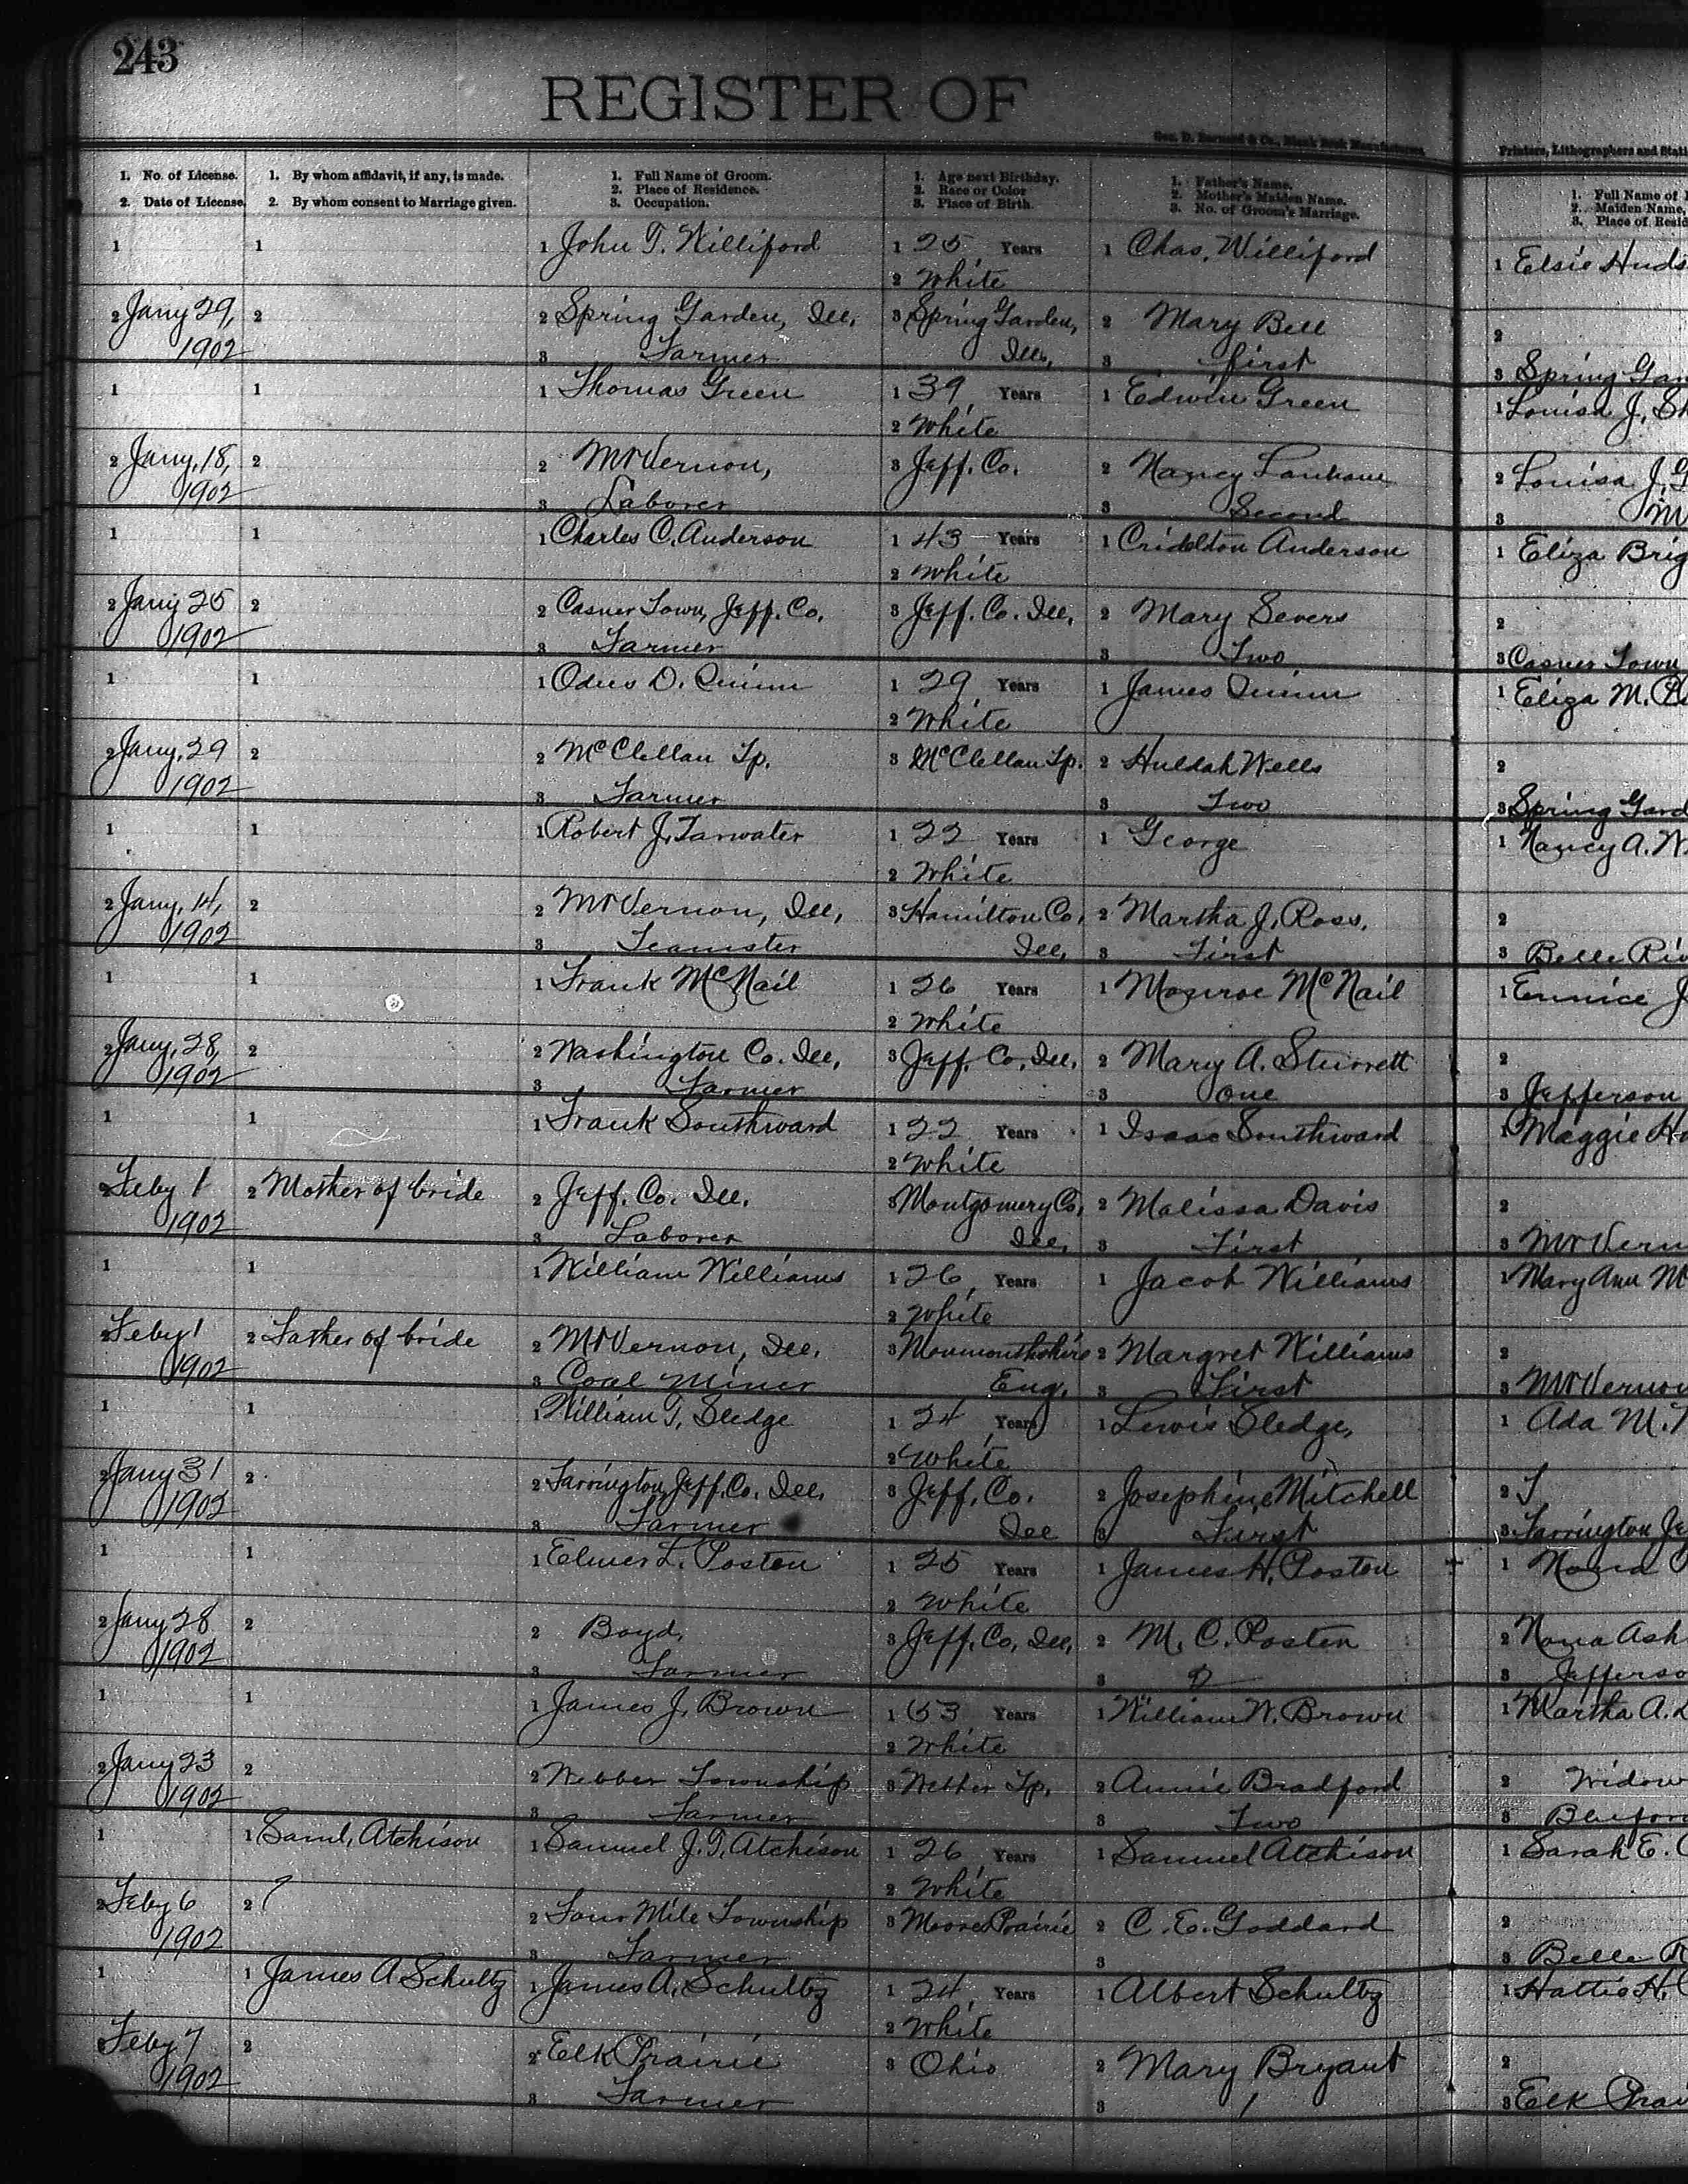 243
REGISTER OF
Geo. D. Barnard & Co., Blank Book Manufacturers,
Printers, Lithographers and Stati
1. No. of License.
2. Date of License.
1. By whom affidavit, if any, is made.
2. By whom consent to Marriage given.
1. Full Name of Groom.
2. Place of Residence.
3. Occupation.
1. Age next Birthday.
2. Race or Color
3. Place of Birth.
1. Father's Name.
2. Mother's Maiden Name.
3. No. of Groom's Marriage.
1. Full Name of
2. Maiden Name,
3. Place of Resid
1 1 1 John T. Williford 1 25 Years 1 Chas. Williford 1 Elsie Huds
2 White
2 Jany 29, 2 2 Spring Garden, Ill, 3 Spring Garden, 2 Mary Bell 2
1902 3 Farmer Ill, 3 first 3 Spring Gar
1 1 1 Thomas Green 1 39 Years 1 Edwin Green 1 Louisa J. Sh
2 White
2 Jany, 18, 2 2 Mt Vernon, 3 Jeff. Co. 2 Nancy Lanham 2 Louisa J. G
1902 3 Laborer 3 Second 3 M
1 1 1 Charles C. Anderson 1 43 Years 1 Anderson 1 Eliza Brig
2 White
2 Jany 25 2 2 Casner Town, Jeff. Co. 3 Jeff. Co. Ill, 2 Mary Severs 2
1902 3 Farmer 3 Two 3 Casner Town
1 1 1 D. Quinn 1 29 Years 1 James Quinn 1 Eliza M.
2 White
2 Jany, 29 2 2 McClellan Tp. 3 McClellan Tp. 2 Huldah Wells 2
1902 3 Farmer 3 Two 3 Spring Gard
1 1 1 Robert J. Tarwater 1 22 Years 1 George 1 Nancy A. W
2 White
2 Jany, 14, 2 2 Mt Vernon, Ill, 3 Hamilton Co, 2 Martha J. Ross, 2
1902 3 Teamster Ill, 3 First 3 Belle Riv
1 1 1 Frank McNail 1 26 Years 1 Monroe McNail 1 Eunice J
2 White
2 Jany, 28, 2 2 Washington Co. Ill, 3 Jeff. Co, Ill, 2 Mary A. Sturrett 2
1902 3 Farmer 3 One 3 Jefferson
1 1 1 Frank Southward 1 22 Years 1 Isaac Southward 1 Maggie Ha
2 White
2 Feby 1 2 Mother of bride 2 Jeff. Co. Ill. 3 Montgomery Co, 2 Malissa Davis 2
1902 3 Laborer Ill, 3 First 3 Mt Vern
1 1 1 William Williams 1 26 Years 1 Jacob Williams 1 Mary Ann M
2 White
2 Feby 1 2 Father of bride 2 Mt Vernon, Ill. 3 Monmouthshire 2 Margret Williams 2
1902 3 Coal Miner Eng. 3 First 3 Mt Vernon
1 1 1 William T. Sledge 1 24 Years 1 Lewis Sledge, 1 Ada M.
2 White
2 Jany 31 2 2 Farrington, Jeff. Co. Ill. 3 Jeff. Co. 2 Josephine Mitchell 2
1902 3 Farmer Ill 3 First 3 Farrington Je
1 1 1 Elmer L. Poston 1 25 Years 1 James H. Poston 1 Nona
2 White
2 Jany 28 2 2 Boyd, 3 Jeff. Co, Ill, 2 M. C. Poston 2 Nona Ash
1902 3 Farmer 3 2 3 Jefferso
1 1 1 James J. Brown 1 53 Years 1 William W. Brown 1 Martha A.
2 White
2 Jany 23 2 2 Webber Township 3 Webber Tp. 2 Annie Bradford 2 Widow
1902 3 Farmer 3 Two 3 Bluford
1 1 Saml, Atchison 1 Samuel J. T. Atchison 1 26 Years 1 Samuel Atchison 1 Sarah E.
2 White
2 Feby 6 2 ? 2 Four Mile Township 3 Moores Prairie 2 C. E. Goddard 2
1902 3 Farmer 3 3 Belle R
1 1 James A Schultz 1 James A. Schultz 1 24 Years 1 Albert Schultz 1 Hattie H.
2 White
2 Feby 7 2 2 Elk Prairie 3 Ohio 2 Mary Bryant 2
1902 3 Farmer 3 1 3 Elk Prai